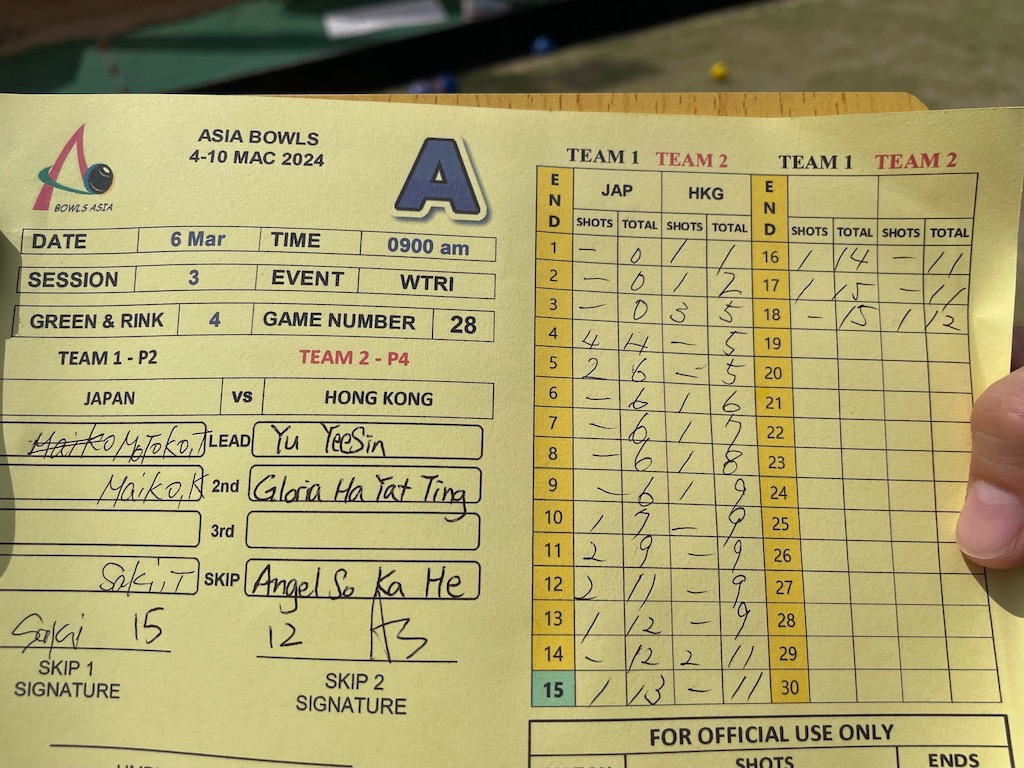 ASIA BOWLS
4-10 MAC 2024
A
BOWLS ASIA
DATE 6 Mar TIME 0900 am
SESSION 3 EVENT WTRI
GREEN & RINK 4 GAME NUMBER 28
TEAM 1 - P2 TEAM 2 - P4
JAPAN VS HONG KONG
Maiko Motoko,T LEAD Yu YeeSin
Maiko,K 2nd Gloria Ha Yat Ting
3rd
SKIP Angel So Ka He
Saki 15 12
SKIP 1 SKIP 2
SIGNATURE SIGNATURE
TEAM 1 TEAM 2 TEAM 1 TEAM 2
END JAP HKG END
SHOTS TOTAL SHOTS TOTAL SHOTS TOTAL SHOTS TOTAL
1 – 0 1 1 16 1 14 – 11
2 – 0 1 2 17 1 15 – 11
3 – 0 3 5 18 – 15 1 12
4 4 4 – 5 19
5 2 6 – 5 20
6 – 6 1 6 21
7 – 6 1 7 22
8 – 6 1 8 23
9 – 6 1 9 24
10 1 7 – 9 25
11 2 9 – 9 26
12 2 11 – 9 27
13 1 12 – 9 28
14 – 12 2 11 29
15 1 13 – 11 30
FOR OFFICIAL USE ONLY
SHOTS ENDS